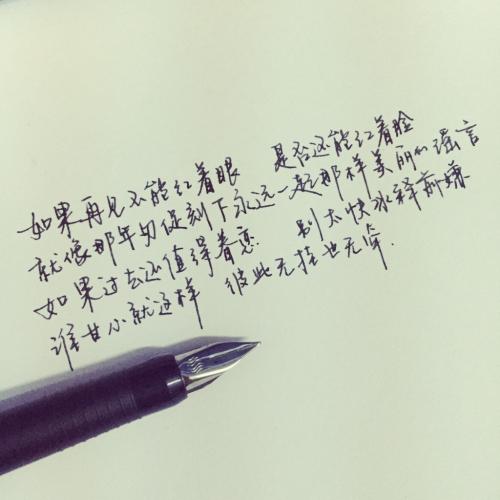 如果再见不能红着眼 是否还能红着脸
就像那年匆促刻下永远一起那样美丽的谣言
如果过去还值得眷恋 别太快冰释前嫌
谁甘心就这样 彼此无挂也无牵.